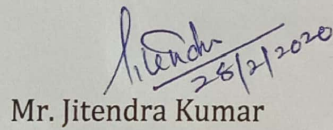 Jitendra
28/2/2020
Mr. Jitendra Kumar